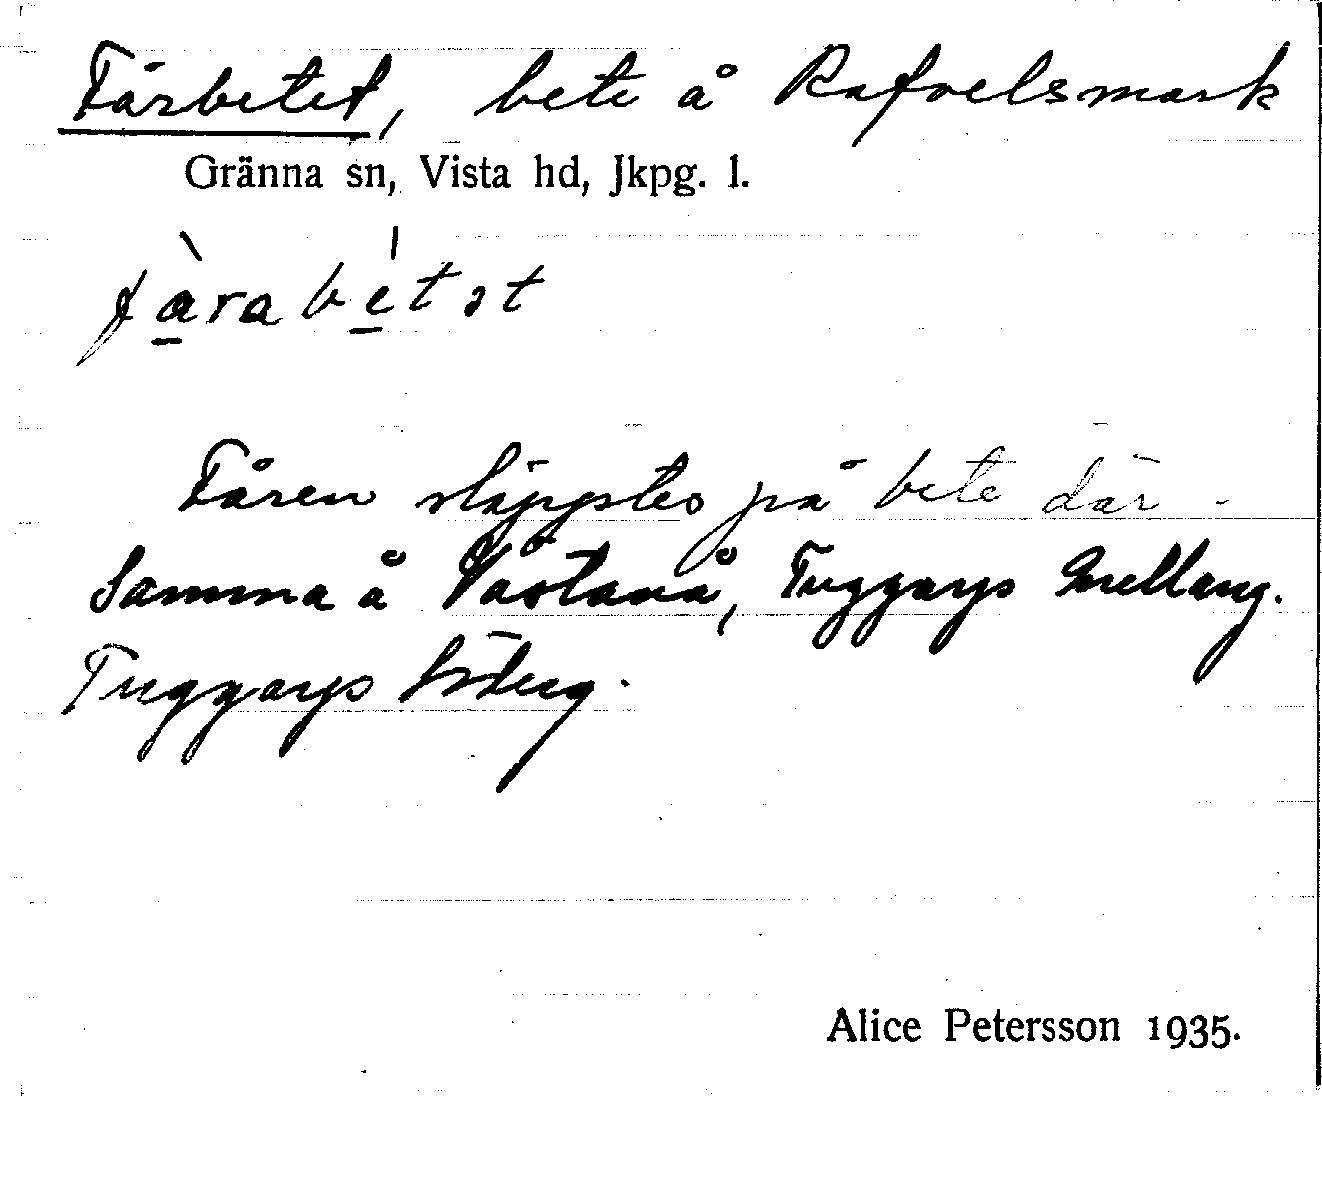 Fårbetet, bete å Rafvelsmark
Gränna sn, Vista hd, Jkpg. l.
fàrabétət
Fåren släpptes på bete där.
Samma å Västanå, Tuggarps Mellang.
Tuggarps Söderg.
Alice Petersson 1935.